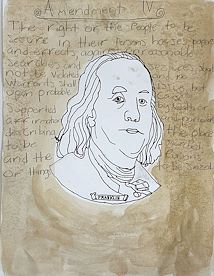 Amendment IV
The right of the People to be
secure in their Persons houses papers
and effects against unreasonable
Search and
not be violated and no
Warrants shall but
upon probable
Supported
affirmation
describing the place
to be
and the Persons
or thing to be seized
FRANKLIN